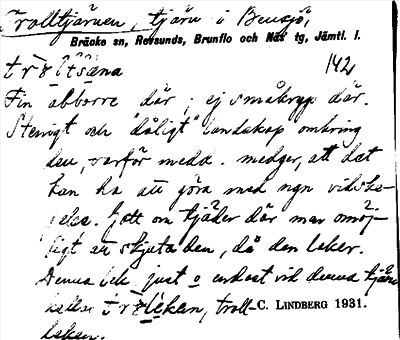 Trolltjärnen, tjärn i Bensjö,
Bräcke sn, Revsunds, Brunflo och Näs tg, Jämtl. l.
142
Fin abborre där; ej småkryp där.
Stenigt och "dåligt" landskap omkring
den, varför medd. medger, att det
kan ha att göra med ngn vidske-
pelse. Gott om tjäder där men omöj-
ligt att skjuta den, då den leker.
Denna lek just o endast vid denna tjärn
kallas trollleken, troll-
C. LINDBERG 1931.
leken.